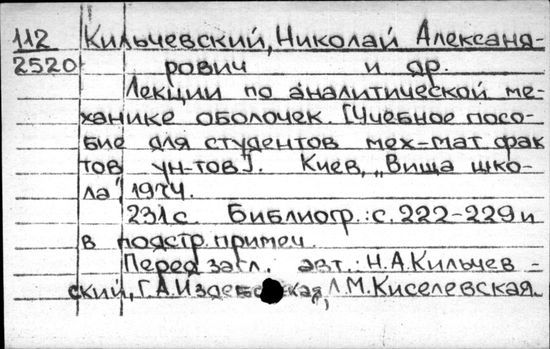 112 Кильчевский, Николай Александ-
2520 рович и др.
Лекции по аналитической ме-
ханике оболочек. [Учебное посо-
бие для студентов мех-мат фак
тов ун-тов]. Киев, „Вища шко-
ла", 1974.
231с. Библиогр.: с. 222-229 и
в подстр. примеч.
Перед загл. авт.: Н.А.Кильчев-
ский, Г.А. Л.М.Киселевская.